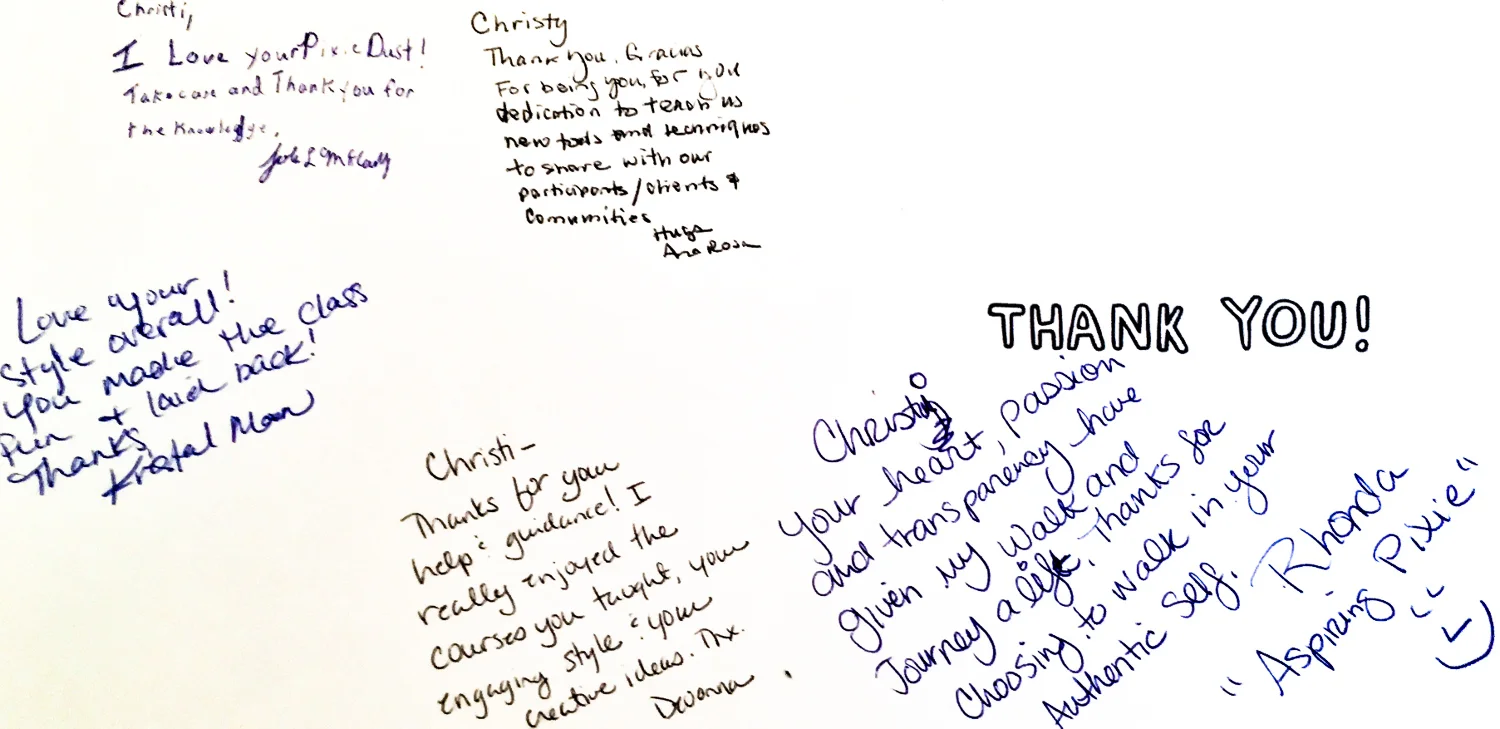 Christi,
I Love your Pixie Dust!
Take care and Thank you for
the Knowledge.
Christy
Thank You, Gracias
For being you, for your
dedication to teach us
new tools and techniques
to share with our
participants/clients &
Comunities
Hugs
Ana Rosa
Love your
Style overall!
You made the class
fun + laid back!
Thanks
Krystal
THANK YOU!
Christi-
Thanks for your
help & guidance! I
really enjoyed the
courses you taught, your
engaging style & your
creative ideas. Thx.
Devonna
Christy
your heart, passion
and transparency have
given my walk and
Journey a lift. Thanks for
Choosing to walk in your
Authentic Self.
Rhonda
"Aspiring Pixie"